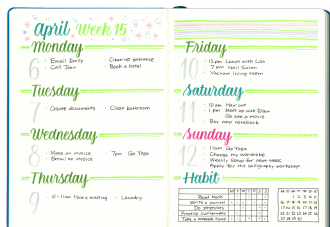 April, Week 15
Monday
6
· Email Emily
· Call Joan
· Clean up entrance
· Book a hotel
Tuesday
7
· Create documents
· Clean bathroom
Wednesday
8
· Make an invoice
· Email an invoice
· 7pm Go Yoga
Thursday
9
· 10-11am Have a meeting
· Laundry
Friday
10
· 12pm Lunch with
· 7pm Nail Salon
· Vacuum living room
Saturday
11
· 10am Hair cut
· 1pm Meet up with Ellen
Go see a movie
· Buy new notebook
Sunday
12
· 11am Go Yoga
· Change my wardrobe
· Weekly setup for next week
· Apply for the calligraphy workshop
Habit
M T W T F S S
Read book
Write a journal
Do exercises
Practice Calligraphy
Take a makeup home